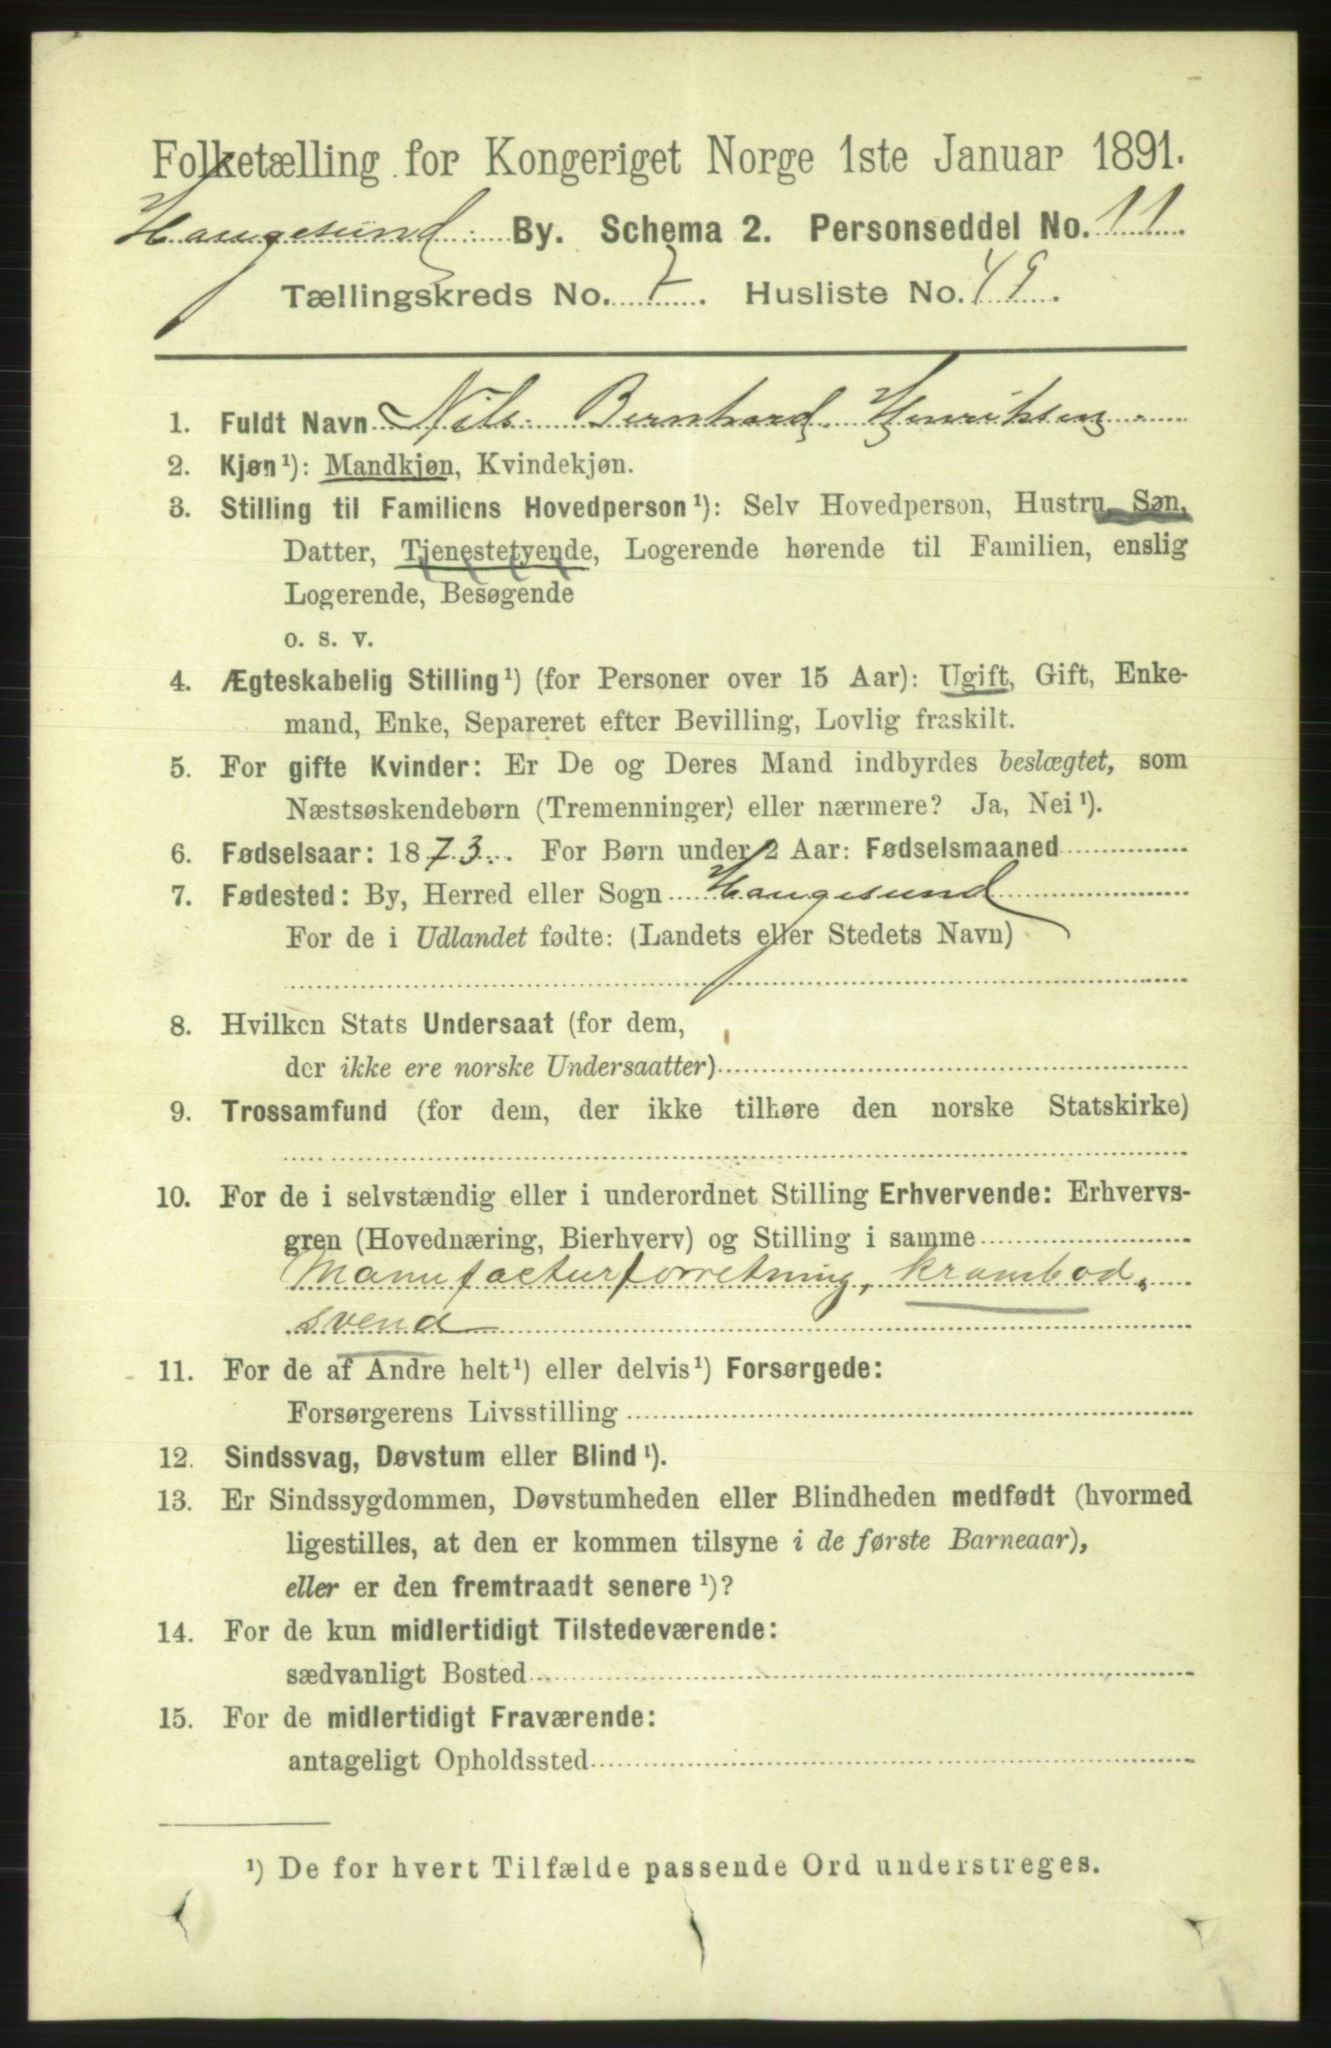 Folketælling for Kongeriget Norge 1ste Januar 1891.
Haugesund By. Schema 2. Personseddel No. 11
Tællingskreds No. 7. Husliste No. 49.
1. Fuldt Navn Nils Bernhard Henriksen
2. Kjøn¹): Mandkjøn, Kvindekjøn.
3. Stilling til Familiens Hovedperson¹): Selv Hovedperson, Hustru, Søn,
Datter, Tjenestetyende, Logerende hørende til Familien, enslig
Logerende, Besøgende
o. s. v.
4. Ægteskabelig Stilling¹) (for Personer over 15 Aar): Ugift, Gift, Enke-
mand, Enke, Separeret efter Bevilling, Lovlig fraskilt.
5. For gifte Kvinder: Er De og Deres Mand indbyrdes beslægtet, som
Næstsøskendebørn (Tremenninger) eller nærmere? Ja, Nei¹).
6. Fødselsaar: 1873. For Børn under 2 Aar: Fødselsmaaned
7. Fødested: By, Herred eller Sogn Haugesund
For de i Udlandet fødte: (Landets eller Stedets Navn)
8. Hvilken Stats Undersaat (for dem,
der ikke ere norske Undersaatter)
9. Trossamfund (for dem, der ikke tilhøre den norske Statskirke)
10. For de i selvstændig eller i underordnet Stilling Erhvervende: Erhvervs-
gren (Hovednæring, Bierhverv) og Stilling i samme
Manufacturforretning, krambod,
svend
11. For de af Andre helt¹) eller delvis¹) Forsørgede:
Forsørgerens Livsstilling
12. Sindssvag, Døvstum eller Blind¹).
13. Er Sindssygdommen, Døvstumheden eller Blindheden medfødt (hvormed
ligestilles, at den er kommen tilsyne i de første Barneaar),
eller er den fremtraadt senere¹)?
14. For de kun midlertidigt Tilstedeværende:
sædvanligt Bosted
15. For de midlertidigt Fraværende:
antageligt Opholdssted
¹) De for hvert Tilfælde passende Ord understreges.